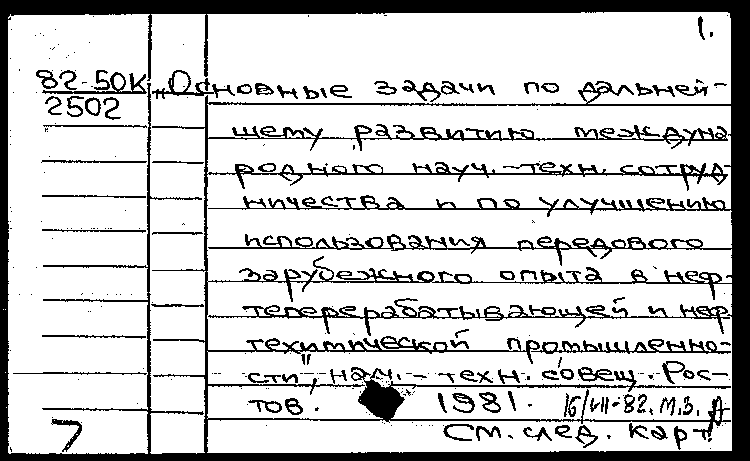 1.
82-50К „Основные задачи по дальней-
2502
шему развитию междуна
родного науч.-техн. сотруд-
ничества и по улучшению
использования передового
зарубежного опыта в неф-
теперерабатывающей и неф
техимической промышленно-
сти", науч.-техн. совещ. Рос-
тов. 1981. 16/VII-82. М.З.
7 См. след. карт.